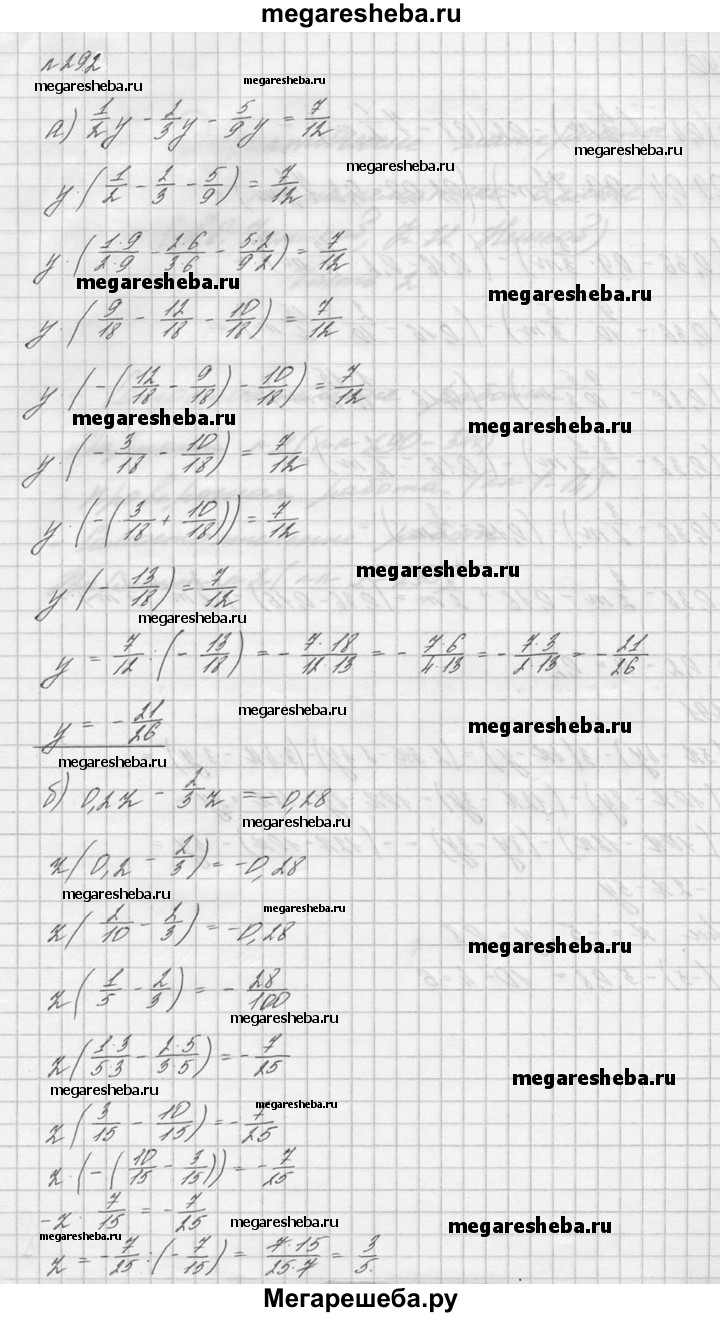 megaresheba.ru
№292
megaresheba.ru megaresheba.ru
а) 1/2 y - 2/3 y - 5/9 y = 7/12
megaresheba.ru
y·(1/2 - 2/3 - 5/9) = 7/12
megaresheba.ru
y·(1·9/2·9 - 2·6/3·6 - 5·2/9·2) = 7/12
megaresheba.ru
megaresheba.ru
y·(9/18 - 12/18 - 10/18) = 7/12
y·(-(12/18 - 9/18) - 10/18) = 7/12
megaresheba.ru
megaresheba.ru
y·(-3/18 - 10/18) = 7/12
y·(-(3/18 + 10/18)) = 7/12
megaresheba.ru
y·(-13/18) = 7/12
megaresheba.ru
y = 7/12 : (-13/18) = -7·18/12·13 = -7·6/4·13 = -7·3/2·13 = -21/26
megaresheba.ru
y = -21/26
megaresheba.ru
megaresheba.ru
б) 0,2z - 2/3 z = -0,28
megaresheba.ru
z(0,2 - 2/3) = -0,28
megaresheba.ru
megaresheba.ru
z(2/10 - 2/3) = -0,28
megaresheba.ru
z(1/5 - 2/3) = -28/100
megaresheba.ru
z(1·3/5·3 - 2·5/3·5) = -7/25
megaresheba.ru
megaresheba.ru
megaresheba.ru
z(3/15 - 10/15) = -7/25
z·(-(10/15 - 3/15)) = -7/25
-z·7/15 = -7/25
megaresheba.ru
megaresheba.ru
megaresheba.ru
z = -7/25 : (-7/15) = 7·15/25·7 = 3/5.
Мегарешеба.ру